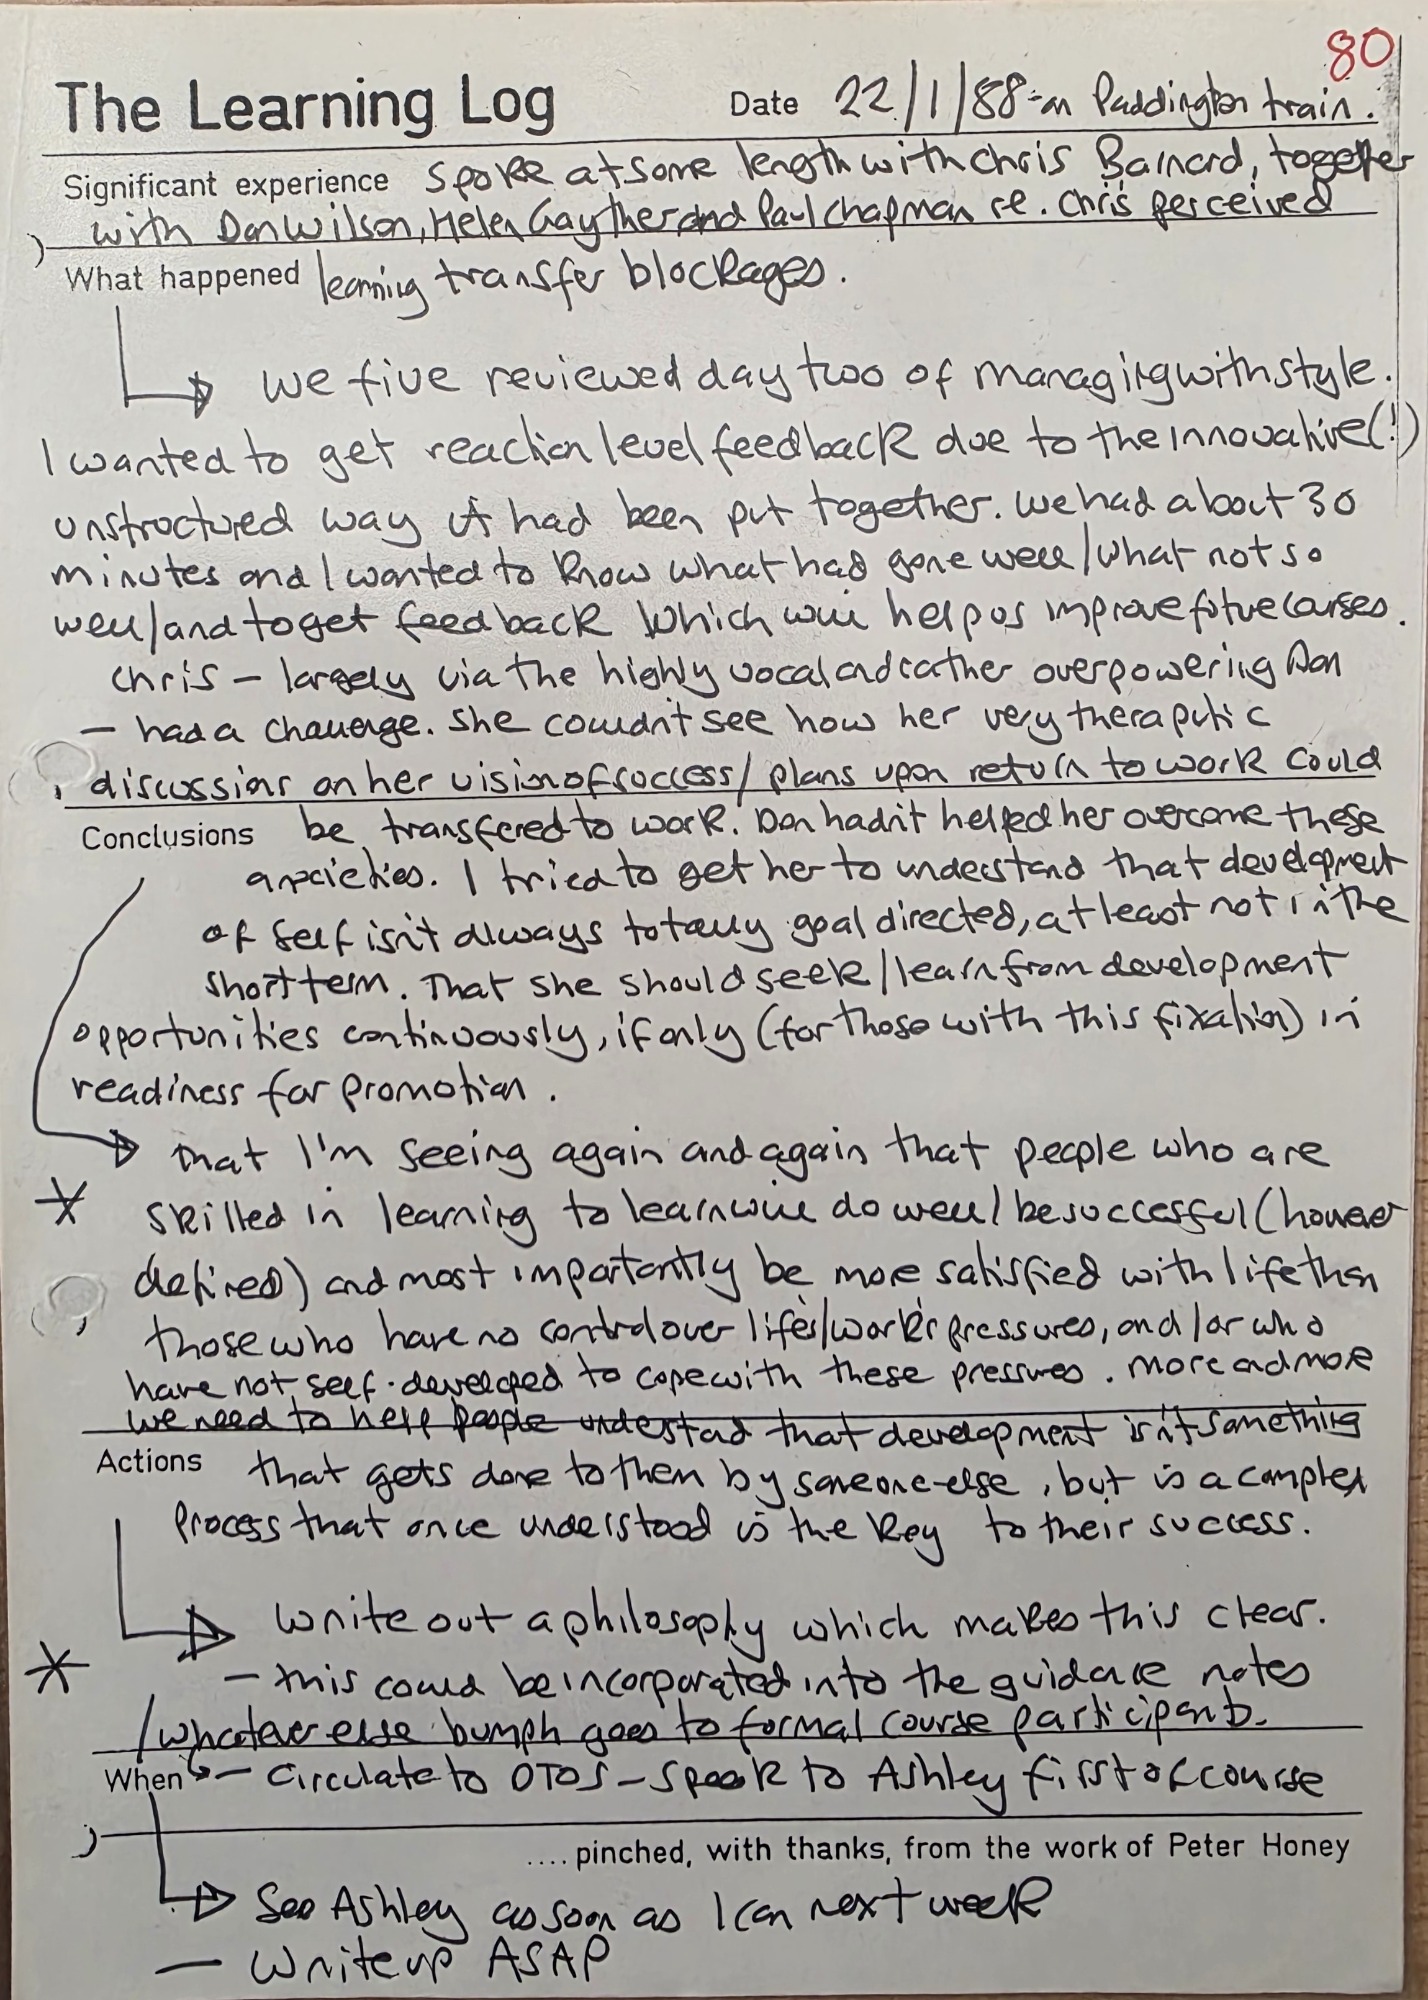 80
The Learning Log Date 22/1/88 - on Paddington train.
Significant experience Spoke at some length with Chris Barnard, together
with Don Wilson, Helen Gayther and Paul Chapman re. Chris' perceived
What happened learning transfer blockages.
We five reviewed day two of managing with style.
I wanted to get reaction level feedback due to the innovative(!)
unstructured way it had been put together. We had about 30
minutes and I wanted to know what had gone well/what not so
well/and to get feedback which will help us improve future courses.
Chris - largely via the highly vocal and rather overpowering Don
- had a challenge. She couldn't see how her very theraputic
discussions on her vision of success/plans upon return to work could
Conclusions be transfered to work. Don hadn't helped her overcome these
anxieties. I tried to get her to understand that development
of self isn't always totally goal directed, at least not in the
short term. That she should seek/learn from development
opportunities continuously, if only (for those with this fixation) in
readiness for promotion.
That I'm seeing again and again that people who are
* skilled in learning to learn will do well/be successful (however
defined) and most importantly be more satisfied with life than
those who have no control over life's/work's pressures, and/or who
have not self-developed to cope with these pressures. More and more
we need to help people understand that development isn't something
Actions that gets done to them by someone-else, but is a complex
process that once understood is the key to their success.
Write out a philosophy which makes this clear.
* - this could be incorporated into the guidance notes
/whatever else bumph goes to formal course participants.
When - Circulate to OTOS - speak to Ashley first of course
.... pinched, with thanks, from the work of Peter Honey
See Ashley as soon as I can next week
- Write up ASAP